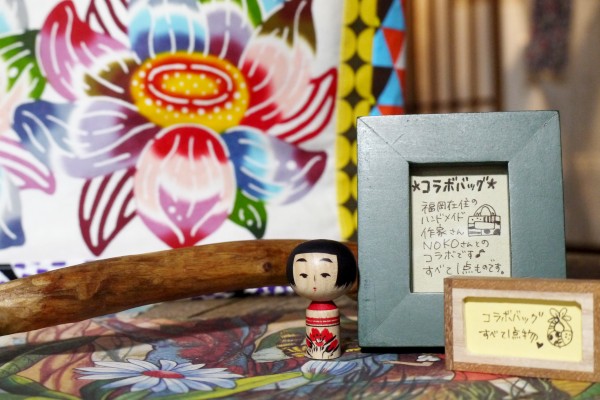 ★コラボバッグ★
福岡在住の
ハンドメイド
作家さん
NOKOさんとの
コラボです♪
すべて1点ものです。
コラボバッグ
すべて1点物。